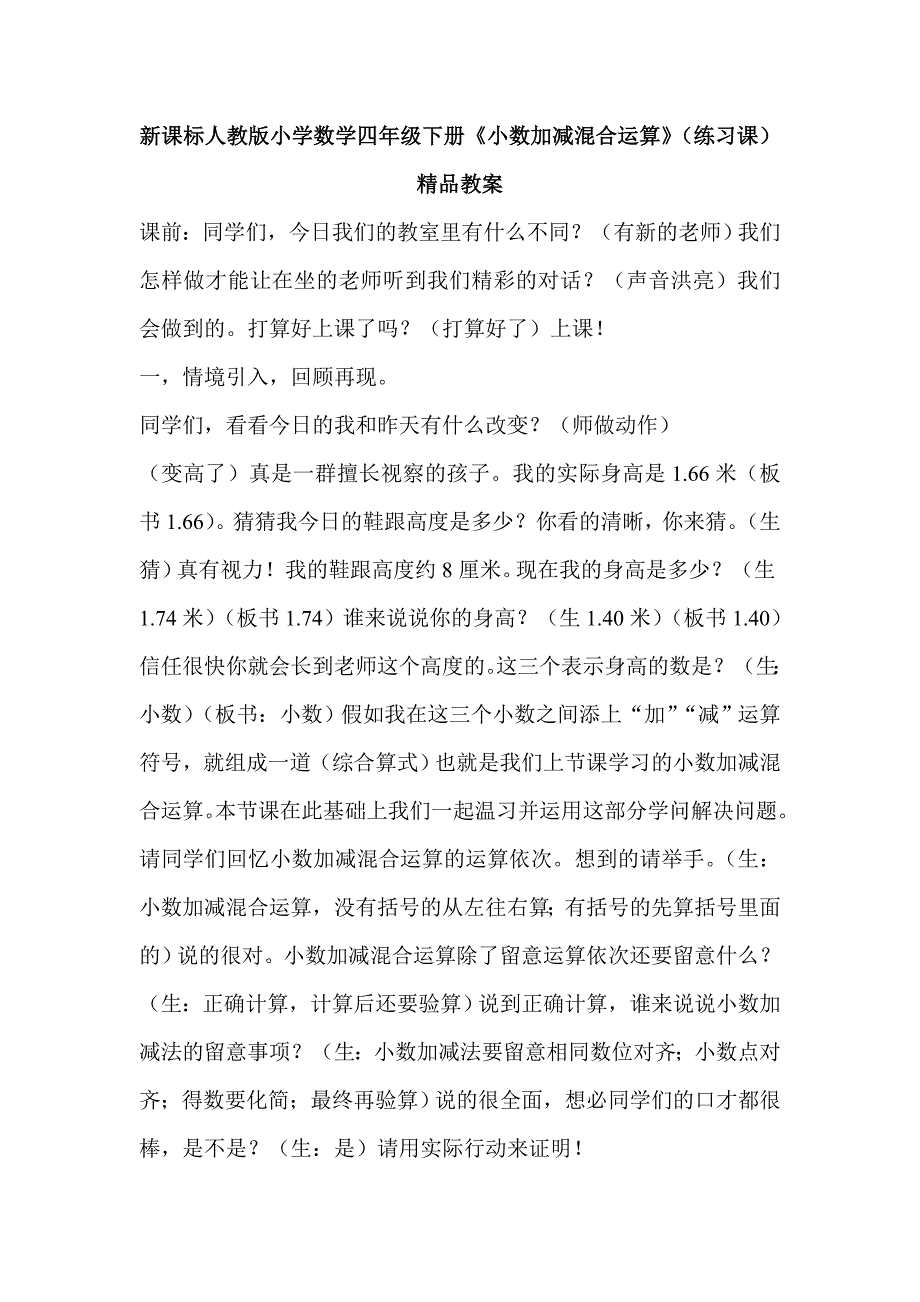 新课标人教版小学数学四年级下册《小数加减混合运算》（练习课）
精品教案
课前：同学们，今日我们的教室里有什么不同？（有新的老师）我们
怎样做才能让在坐的老师听到我们精彩的对话？（声音洪亮）我们
会做到的。打算好上课了吗？（打算好了）上课！
一，情境引入，回顾再现。
同学们，看看今日的我和昨天有什么改变？（师做动作）
（变高了）真是一群擅长视察的孩子。我的实际身高是 1.66 米（板
书 1.66）。猜猜我今日的鞋跟高度是多少？你看的清晰，你来猜。（生
猜）真有视力！我的鞋跟高度约 8 厘米。现在我的身高是多少？（生
1.74 米）（板书 1.74）谁来说说你的身高？（生 1.40 米）（板书 1.40）
信任很快你就会长到老师这个高度的。这三个表示身高的数是？（生：
小数）（板书：小数）假如我在这三个小数之间添上“加”“减”运算
符号，就组成一道（综合算式）也就是我们上节课学习的小数加减混
合运算。本节课在此基础上我们一起温习并运用这部分学问解决问题。
请同学们回忆小数加减混合运算的运算依次。想到的请举手。（生：
小数加减混合运算，没有括号的从左往右算；有括号的先算括号里面
的）说的很对。小数加减混合运算除了留意运算依次还要留意什么？
（生：正确计算，计算后还要验算）说到正确计算，谁来说说小数加
减法的留意事项？（生：小数加减法要留意相同数位对齐；小数点对
齐；得数要化简；最终再验算）说的很全面，想必同学们的口才都很
棒，是不是？（生：是）请用实际行动来证明！